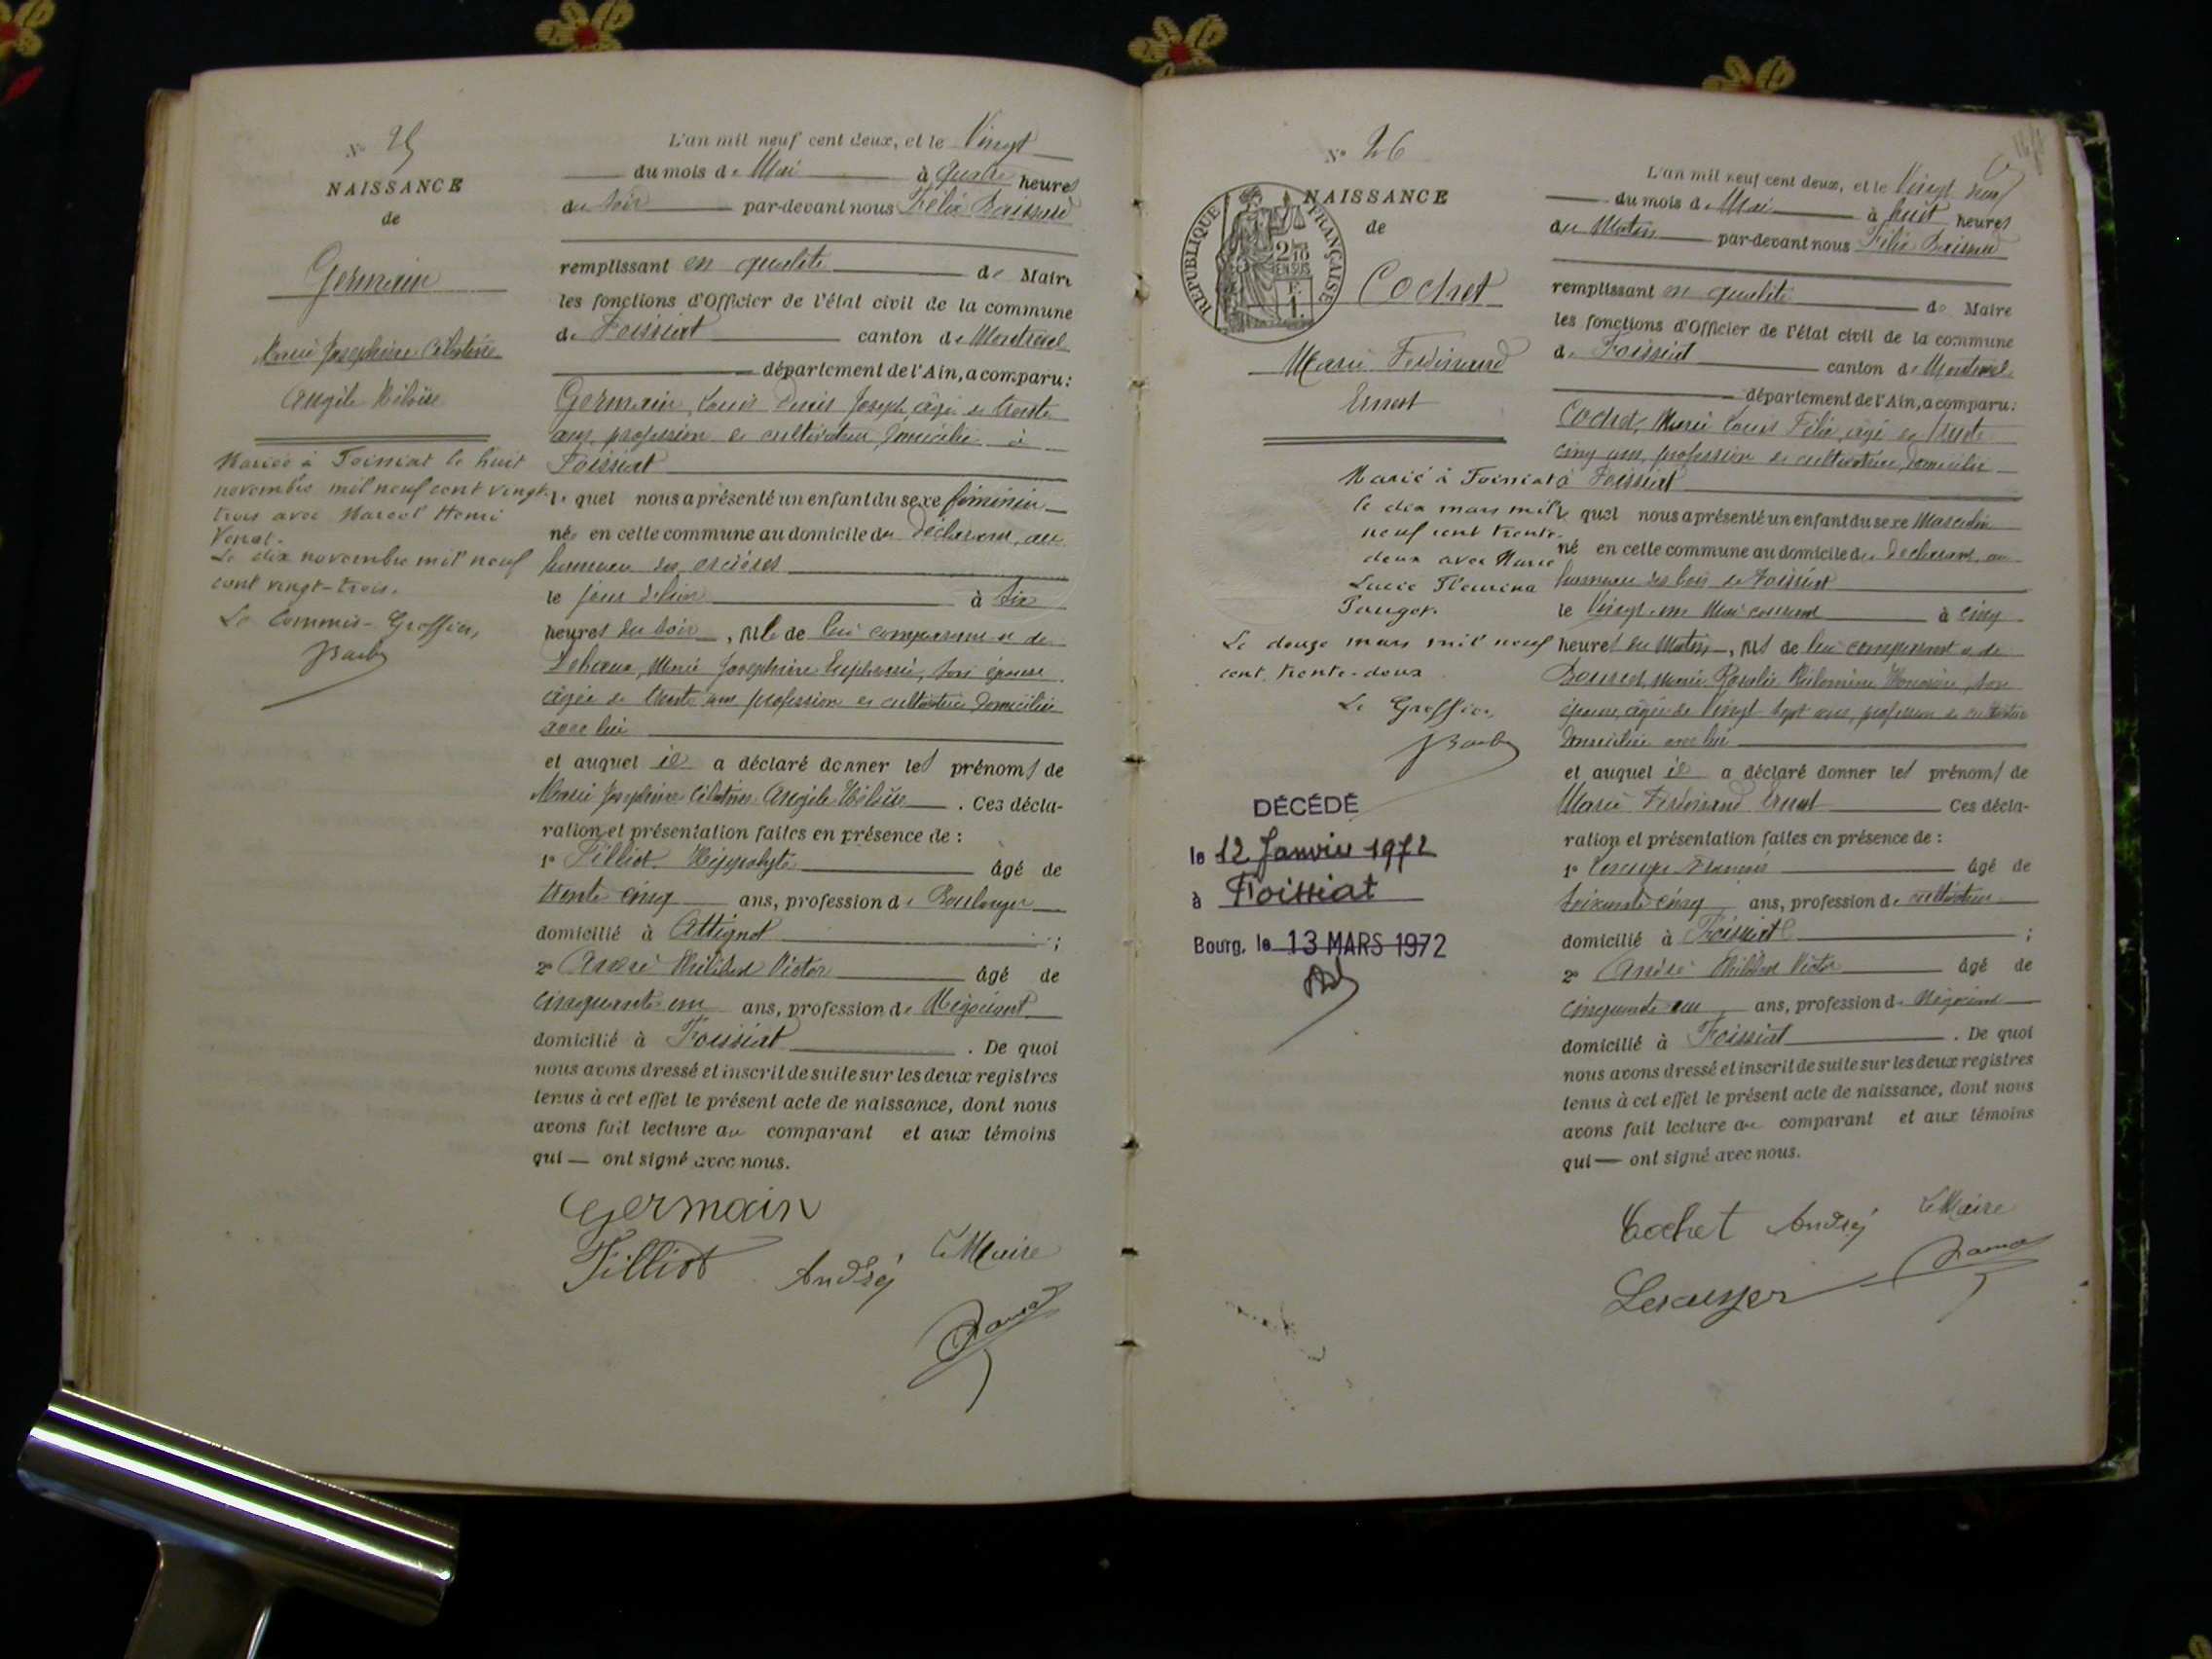 N° 25
NAISSANCE
de
Germain
Marie Joséphine Célestine
Angèle Héloïse
Mariée à Foissiat le huit
novembre mil neuf cent vingt-
trois avec Marcel Henri
Venet.
Le dix novembre mil neuf
cent vingt-trois.
Le Commis-Greffier,
L'an mil neuf cent deux, et le Vingt
du mois de Mai à quatre heures
du soir par-devant nous Félix
remplissant en qualité de Maire
les fonctions d'Officier de l'état civil de la commune
de Foissiat canton de Montrevel
département de l'Ain, a comparu:
Germain, Louis Denis Joseph, âgé de trente
ans, profession de cultivateur domicilié à
Foissiat
le quel nous a présenté un enfant du sexe féminin
née en cette commune au domicile du déclarant, au
hameau des
le jour d'hier à six
heures du soir, fille de lui comparant et de
Marie Joséphine Euphrasie, son épouse
âgée de trente ans profession de cultivatrice domiciliée
avec lui
et auquel il a déclaré donner les prénoms de
Marie Joséphine Célestine Angèle Héloïse. Ces décla-
ration et présentation faites en présence de :
1° Tilliot Hippolyte âgé de
trente cinq ans, profession de Boulanger
domicilié à Attignat ;
2° André Philibert Victor âgé de
cinquante un ans, profession de Négociant
domicilié à Foissiat. De quoi
nous avons dressé et inscrit de suite sur les deux registres
tenus à cet effet le présent acte de naissance, dont nous
avons fait lecture au comparant et aux témoins
qui — ont signé avec nous.
Germain
Tilliot André Le Maire
N° 26
NAISSANCE
de
REPUBLIQUE FRANÇAISE
2/10 EN SUS
F. 1.
Cochet
Marie Ferdinand
Ernest
Marié à Foissiat
le dix mars mil
neuf cent trente-
deux avec Marie
Lucie Fleurina
Le douze mars mil neuf
cent trente-deux
Le Greffier,
DÉCÉDÉ
le 12 Janvier 1972
à Foissiat
Bourg, le 13 MARS 1972
L'an mil neuf cent deux, et le Vingt
du mois de Mai à huit heures
du Matin par-devant nous Félix
remplissant en qualité de Maire
les fonctions d'Officier de l'état civil de la commune
de Foissiat canton de Montrevel
département de l'Ain, a comparu:
Cochet, Marie Louis Félix, âgé de trente
cinq ans, profession de cultivateur, domicilié
à Foissiat
le quel nous a présenté un enfant du sexe Masculin
né en cette commune au domicile du déclarant, au
hameau des bois de Foissiat
le Vingt un Mai courant à cinq
heures du Matin, fils de lui comparant et de
Marie Rosalie Philomène, son
épouse, âgée de Vingt sept ans, profession de cultivatrice
domiciliée avec lui
et auquel il a déclaré donner les prénoms de
Marie Ferdinand Ernest Ces décla-
ration et présentation faites en présence de :
1° François âgé de
soixante cinq ans, profession de cultivateur
domicilié à Foissiat ;
2° André Philibert Victor âgé de
cinquante un ans, profession de Négociant
domicilié à Foissiat. De quoi
nous avons dressé et inscrit de suite sur les deux registres
tenus à cet effet le présent acte de naissance, dont nous
avons fait lecture au comparant et aux témoins
qui — ont signé avec nous.
Cochet André Le Maire